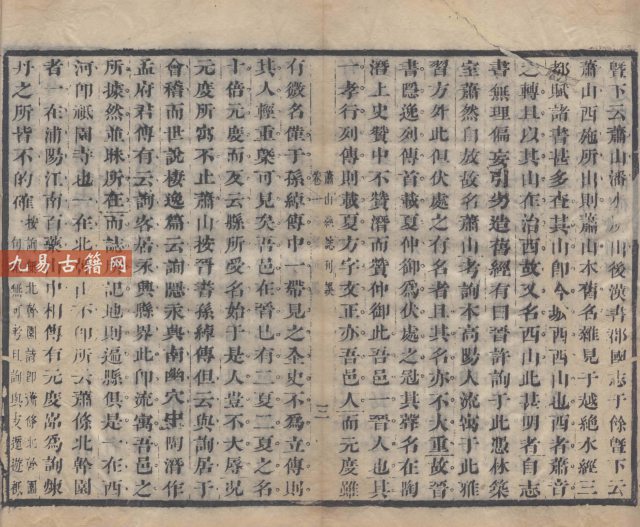 暨下云蕭山潘水山後漢書郡國志于餘暨下云
蕭山西施所出則蕭山本舊名雜見于越絕水經三
都賦諸書甚多查其山即今城西山也西者蕭音
之轉且以其山在治西故又名西山此甚明者自志
書無理偏妄引舛造舊經有曰晉許詢于此憑林築
室蕭然自放故名蕭山考詢本高陽人流寓于此雅
習方外此但伏處之有名者且其名亦不大重故晉
書隱逸列傳首載夏仲御爲伏處之冠其葬名在陶
潛上史贊中不贊潛而贊仲御此吾邑一晉人也其
一孝行列傳則載夏方字文正亦吾邑一人而元度雖
蕭山縣志刊誤
卷一
三
有微名僅于孫綽傳中一帶見之全史不爲立傳則
其人輕重槩可見矣吾邑在晉已有二夏二夏之名
十倍元度而反云縣所受名始于是人豈不大辱况
元度所寓不止蕭山按晉書孫綽傳但云與詢居于
會稽而世說棲逸篇云詢隱永興南幽穴中陶潛作
孟府君傳有云詢客居永興縣界此即流寓吾邑之
所據然並無所在而誌記地則遍縣俱是一在西
河即祇園寺也一在北山下即所云蕭條北幹園
者一在浦陽江南百藥中相傳有元度嵓爲詢煉
丹之所皆不的確
九易古籍网